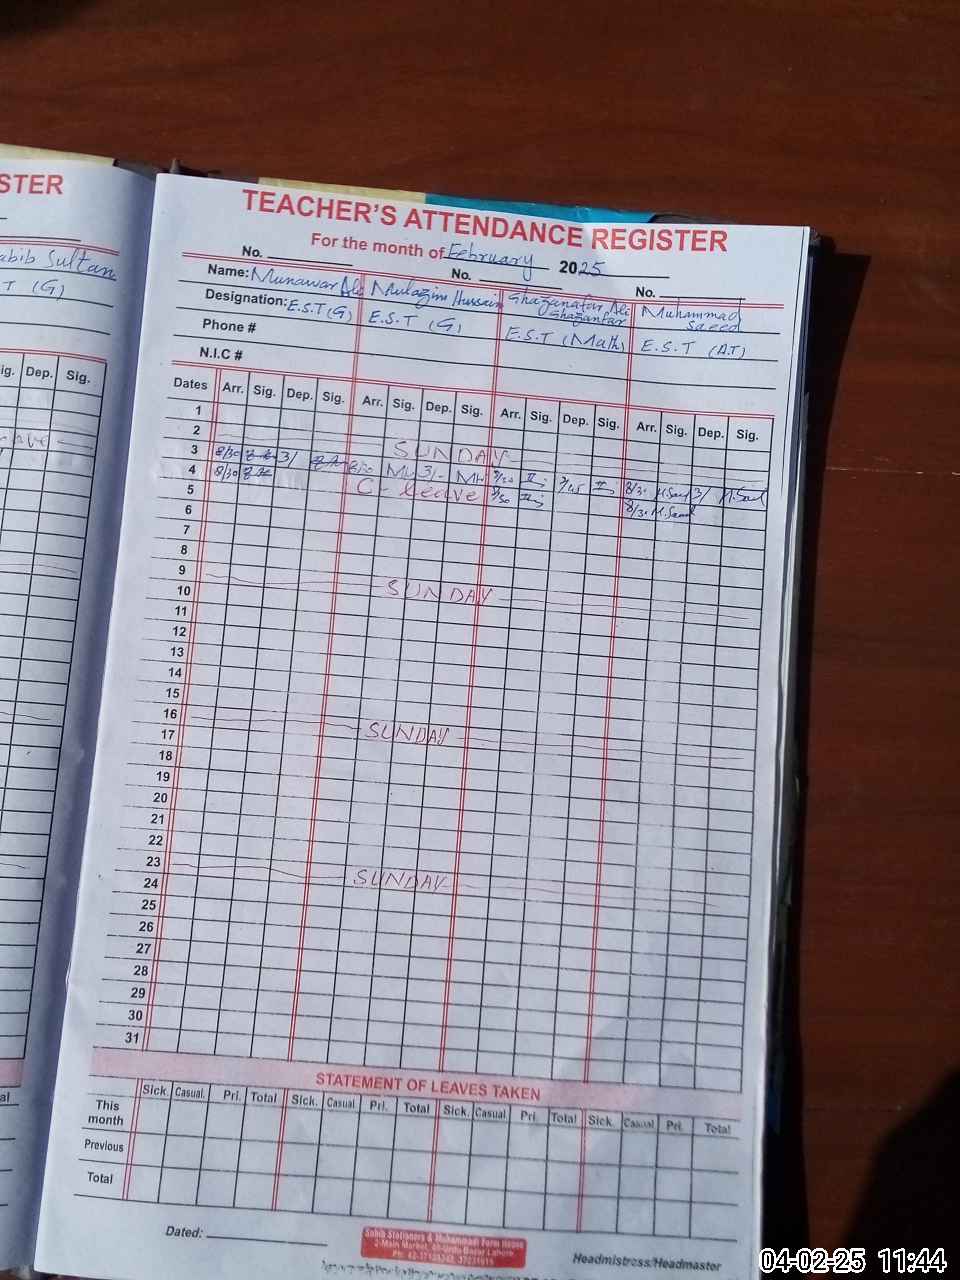 STER
abib Sultan
T (G)
ig. Dep. Sig.
TEACHER'S ATTENDANCE REGISTER
For the month of February 2025
No. No. No.
Name: Munawar Ali Mulazim Hussain Ghazanfar Ali Ghazanfar Muhammad Saeed
Designation: E.S.T (G) E.S.T (G) E.S.T (Math) E.S.T (A.T)
Phone #
N.I.C #
Dates Arr. Sig. Dep. Sig. Arr. Sig. Dep. Sig. Arr. Sig. Dep. Sig. Arr. Sig. Dep. Sig.
1
2 SUNDAY
3 8/30 3/ 8/30 MH 3/- MH 7/45 8/30 M.Saeed 3/ M.Saeed
4 8/30 C- leave 8/30 M.Saeed
5
6
7
8
9 SUNDAY
10
11
12
13
14
15
16 SUNDAY
17
18
19
20
21
22
23 SUNDAY
24
25
26
27
28
29
30
31
STATEMENT OF LEAVES TAKEN
Sick. Casual. Pri. Total Sick. Casual. Pri. Total Sick. Casual. Pri. Total Sick. Casual Pri. Total
This month
Previous
Total
Dated:
Sahib Stationers & Muhammadi Form House
2-Main Market, Urdu Bazar Lahore
Headmistress/Headmaster
04-02-25 11:44